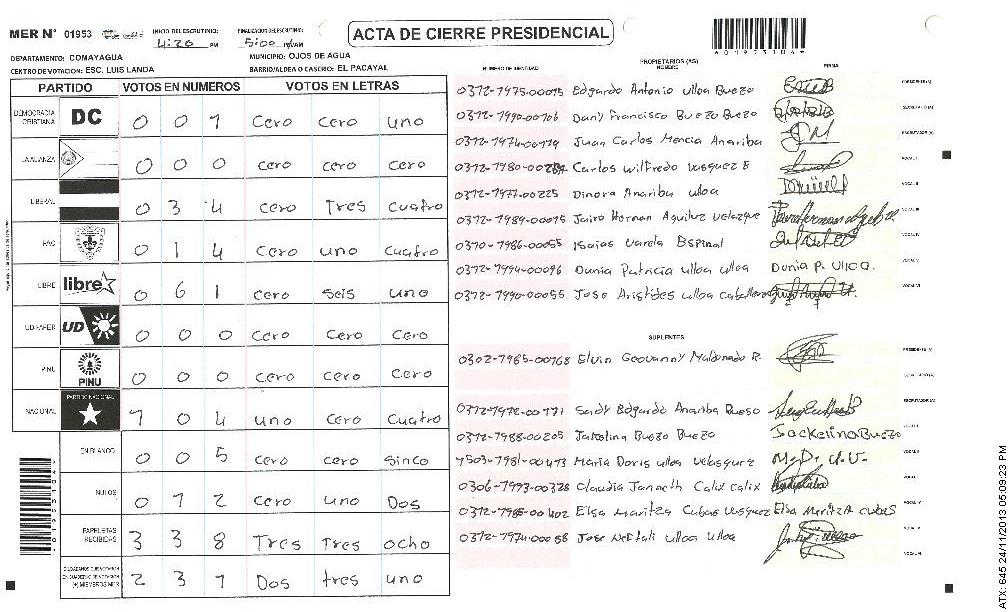 MER N° 01953
INICIO DEL ESCRUTINIO: 4:20 PM
FINALIZACION ESCRUTINIO: 5:00 PM/AM
ACTA DE CIERRE PRESIDENCIAL
*01953104*
DEPARTAMENTO: COMAYAGUA
MUNICIPIO: OJOS DE AGUA
CENTRO DE VOTACION: ESC. LUIS LANDA
BARRIO/ALDEA O CASERIO: EL PACAYAL
PARTIDO VOTOS EN NUMEROS VOTOS EN LETRAS
DEMOCRACIA CRISTIANA DC 0 0 1 cero cero uno
LA ALIANZA 0 0 0 cero cero cero
LIBERAL 0 3 4 cero Tres cuatro
PAC 0 1 4 cero uno cuatro
LIBRE libre 0 6 1 cero seis uno
UD/FAPER UD 0 0 0 cero cero cero
PINU PINU 0 0 0 cero cero cero
NACIONAL PARTIDO NACIONAL 1 0 4 uno cero cuatro
EN BLANCO 0 0 5 cero cero sinco
NULOS 0 1 2 cero uno Dos
PAPELETAS RECIBIDAS 3 3 8 Tres Tres ocho
CIUDADANOS QUE VOTARON EN CUADERNO DE VOTACION (+) MIEMBROS MER 2 3 1 Dos tres uno
NUMERO DE IDENTIDAD PROPIETARIOS (AS) NOMBRE FIRMA
0312-1975-00015 Edgardo Antonio ulloa Buezo PRESIDENTE (A)
0312-1990-00106 Dany Francisco Buezo Buezo SECRETARIO (A)
0312-1974-00119 Juan Carlos Mencia Anariba ESCRUTADOR (A)
Carlos wilfredo vasquez E VOCAL I
0312-1977-00225 Dinora Anariba ulloa VOCAL II
0312-1989-00015 Jairo Hernan Aguiluz velazque VOCAL III
0310-1986-00055 Isaias varela Espinal VOCAL IV
0312-1994-00096 Dunia Patricia ulloa ulloa Dunia P. Ulloa. VOCAL V
0312-1990-00055 Jose Aristides ulloa caballero VOCAL VI
SUPLENTES
0302-1985-00168 Elvin Geovanny Maldonado R. PRESIDENTE (A)
SECRETARIO (A)
0312-1972-00171 Saidy Edgardo Anariba Bueso ESCRUTADOR (A)
0312-1988-00205 Jakelina Buezo Buezo Jackelina Buezo VOCAL I
1503-1981-00473 Maria Doris ulloa velasquez M. D. U. V. VOCAL II
0306-1993-00328 Claudia Janneth Calix Calix VOCAL III
0312-1985-00102 Elsa Maritza Cubas vasquez Elsa Maritza cubas VOCAL IV
0312-1974-00058 Jose Neftali ulloa ulloa VOCAL V
VOCAL VI
*01953104*
ATX: 645 24/11/2013 05:09:23 PM